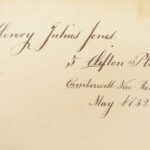 Henry Julius Jones.
5 Clifton Pl
Camberwell New Ro
May 1852